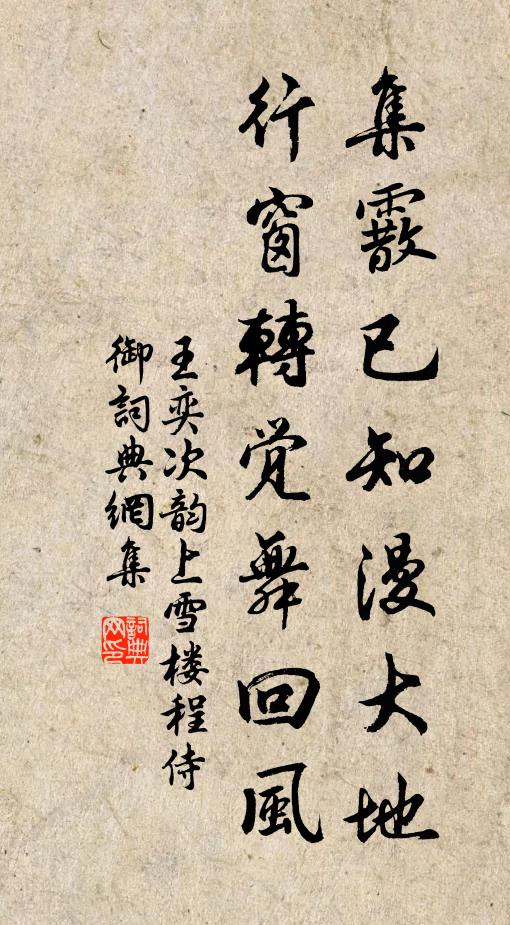 集霰已知漫大地
行窗轉觉舞回風
王奕次韵上雪楼程侍
御詞典網集
詞典
网印